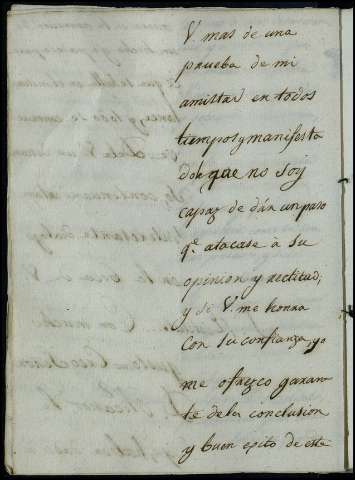 V mas de una
prueba de mi
amistad en todos
tiempos y manifesta
dole que no soy
capaz de dár un paso
qe. atacase à su
opinion y rectitud;
y si V. me honra
con su confianza, yo
me ofrezco garan-
te de la conclusion
y buen exito de este